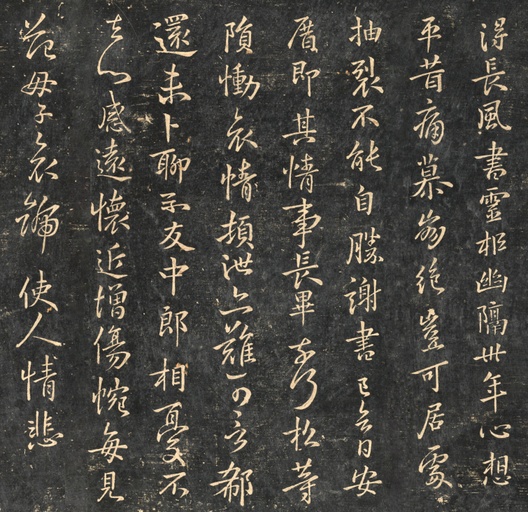 得長風書靈柩幽隔卅年心想
平昔痛慕崩絶豈可居處
抽裂不能自勝謝書已令日安
厝即其情事長畢奈何松等
隕慟哀情頓泄亦難可言郗
還未卜聊示友中郎相憂不
去心感遠懷近增傷惋每見
范母子哀號使人情悲